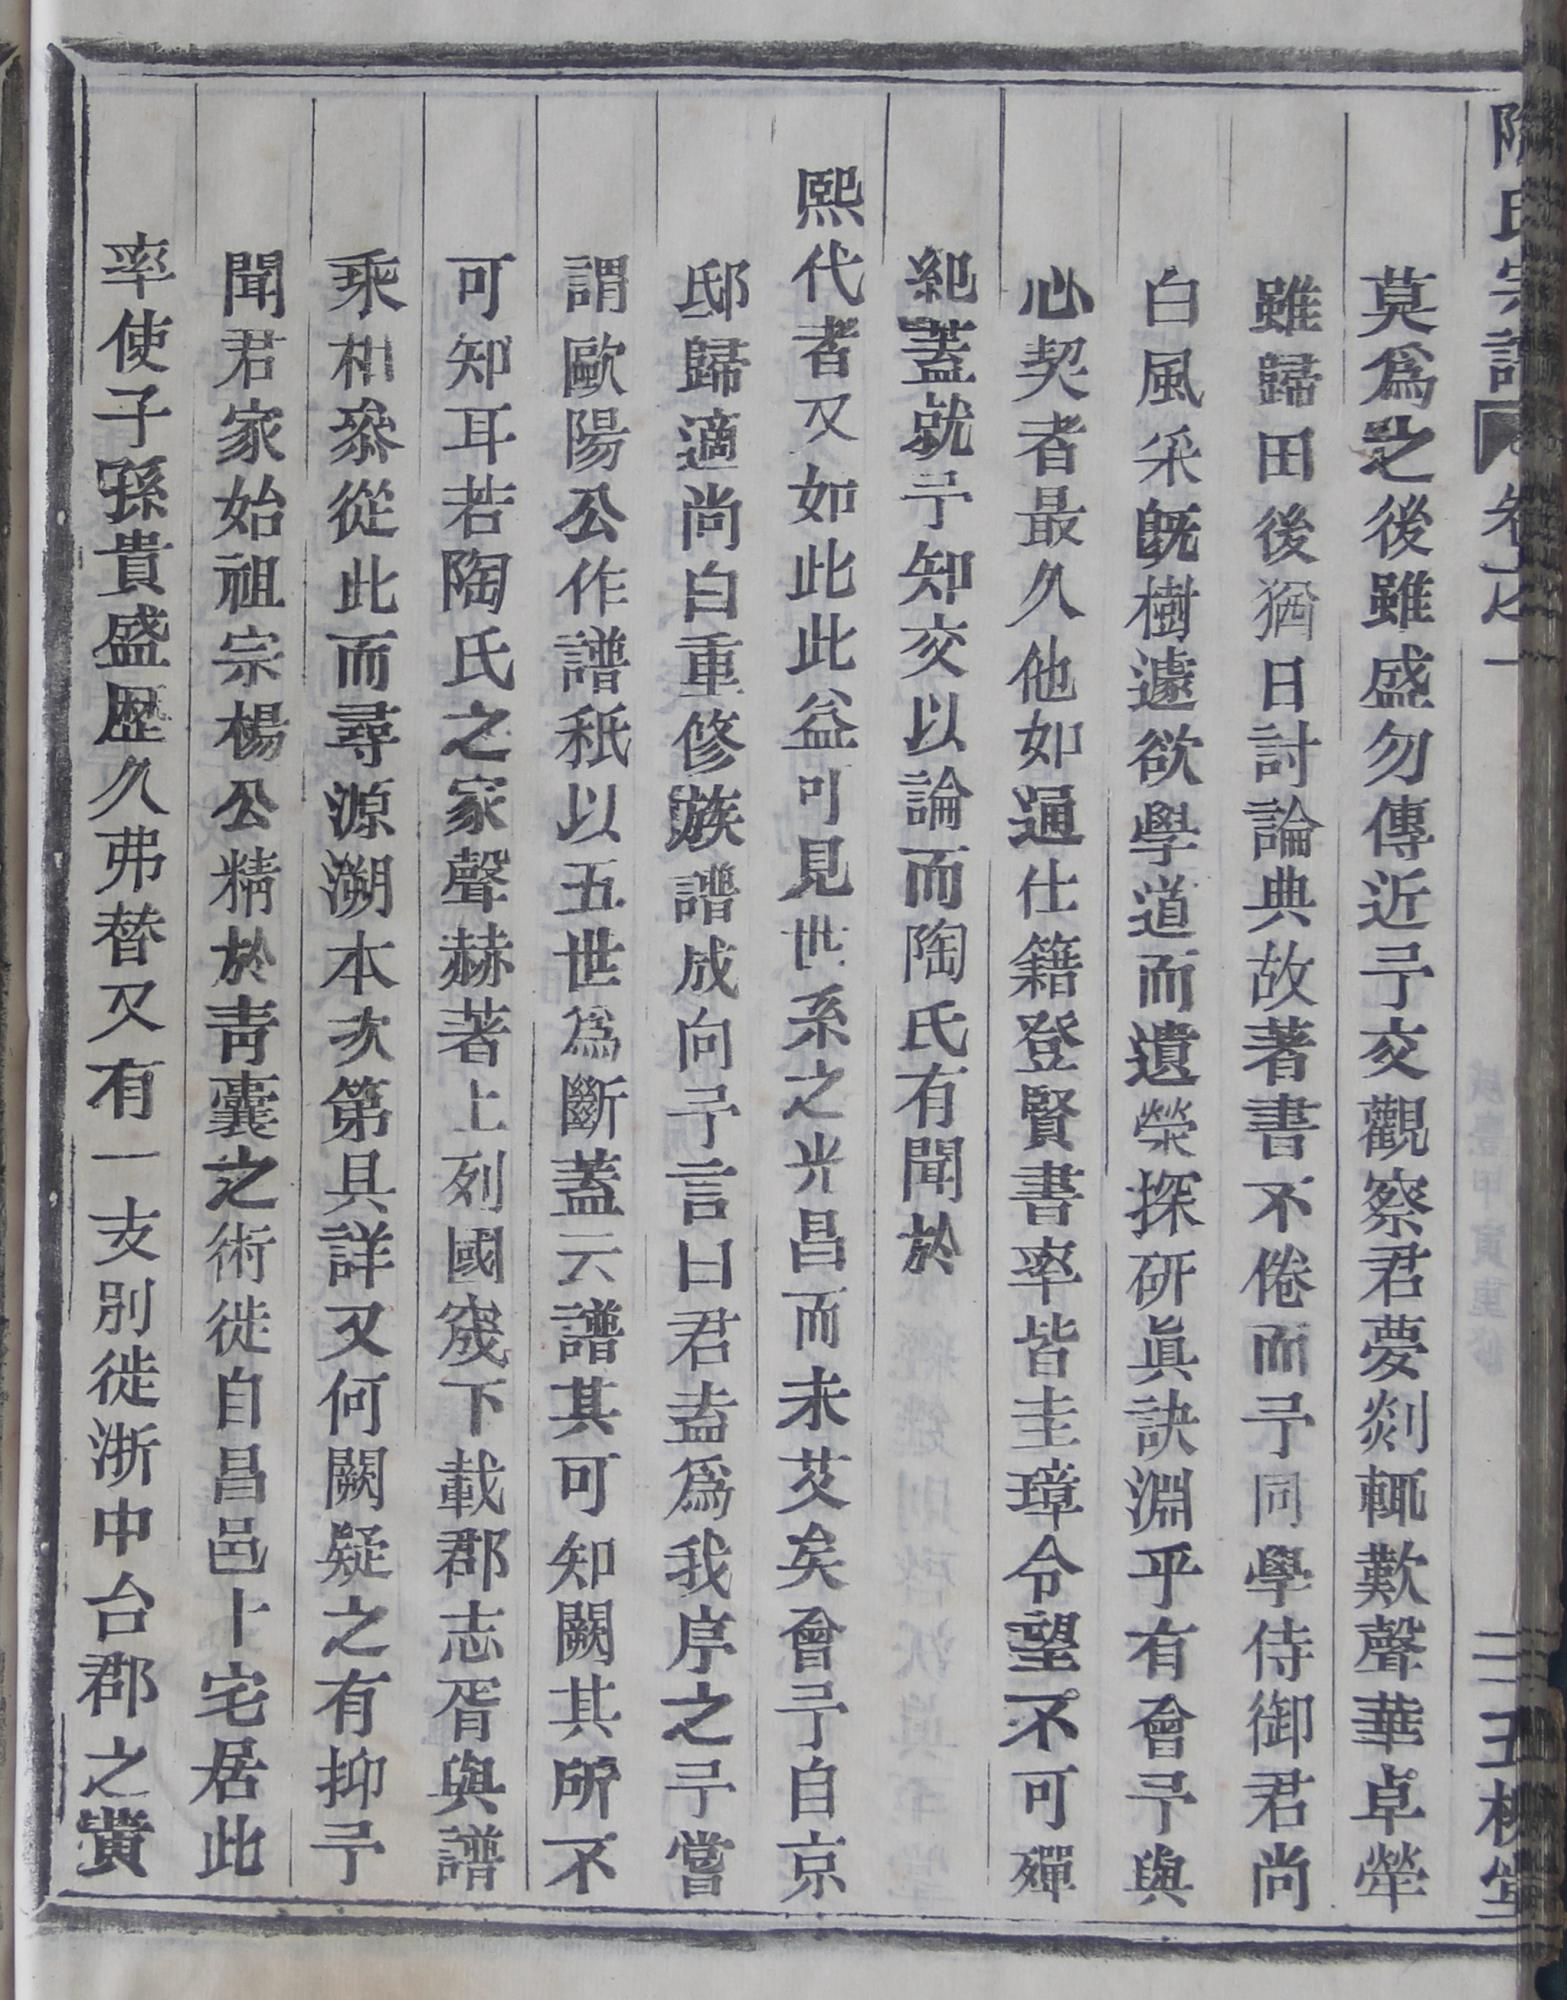 陶氏宗譜 卷之一 二 五柳堂
莫爲之後雖盛勿傳近予交觀察君夢剡輒歎聲華卓犖
雖歸田後猶日討論典故著書不倦而予同學侍御君尚
白風采旣樹遽欲學道而遺榮探硏眞訣淵乎有會予與
心契者最久他如通仕籍登賢書率皆圭璋令望不可殫
紀蓋就予知交以論而陶氏有聞於
熙代者又如此此益可見世系之光昌而未艾矣會予自京
邸歸適尚白重修族譜成向予言曰君盍爲我序之予嘗
謂歐陽公作譜秖以五世爲斷蓋云譜其可知闕其所不
可知耳若陶氏之家聲赫著上列國窚下載郡志胥與譜
乘相叅從此而尋源溯本次第具詳又何闕疑之有抑予
聞君家始祖宗楊公精於靑囊之術徙自昌邑卜宅居此
率使子孫貴盛歷久弗替又有一支別徙浙中台郡之黄